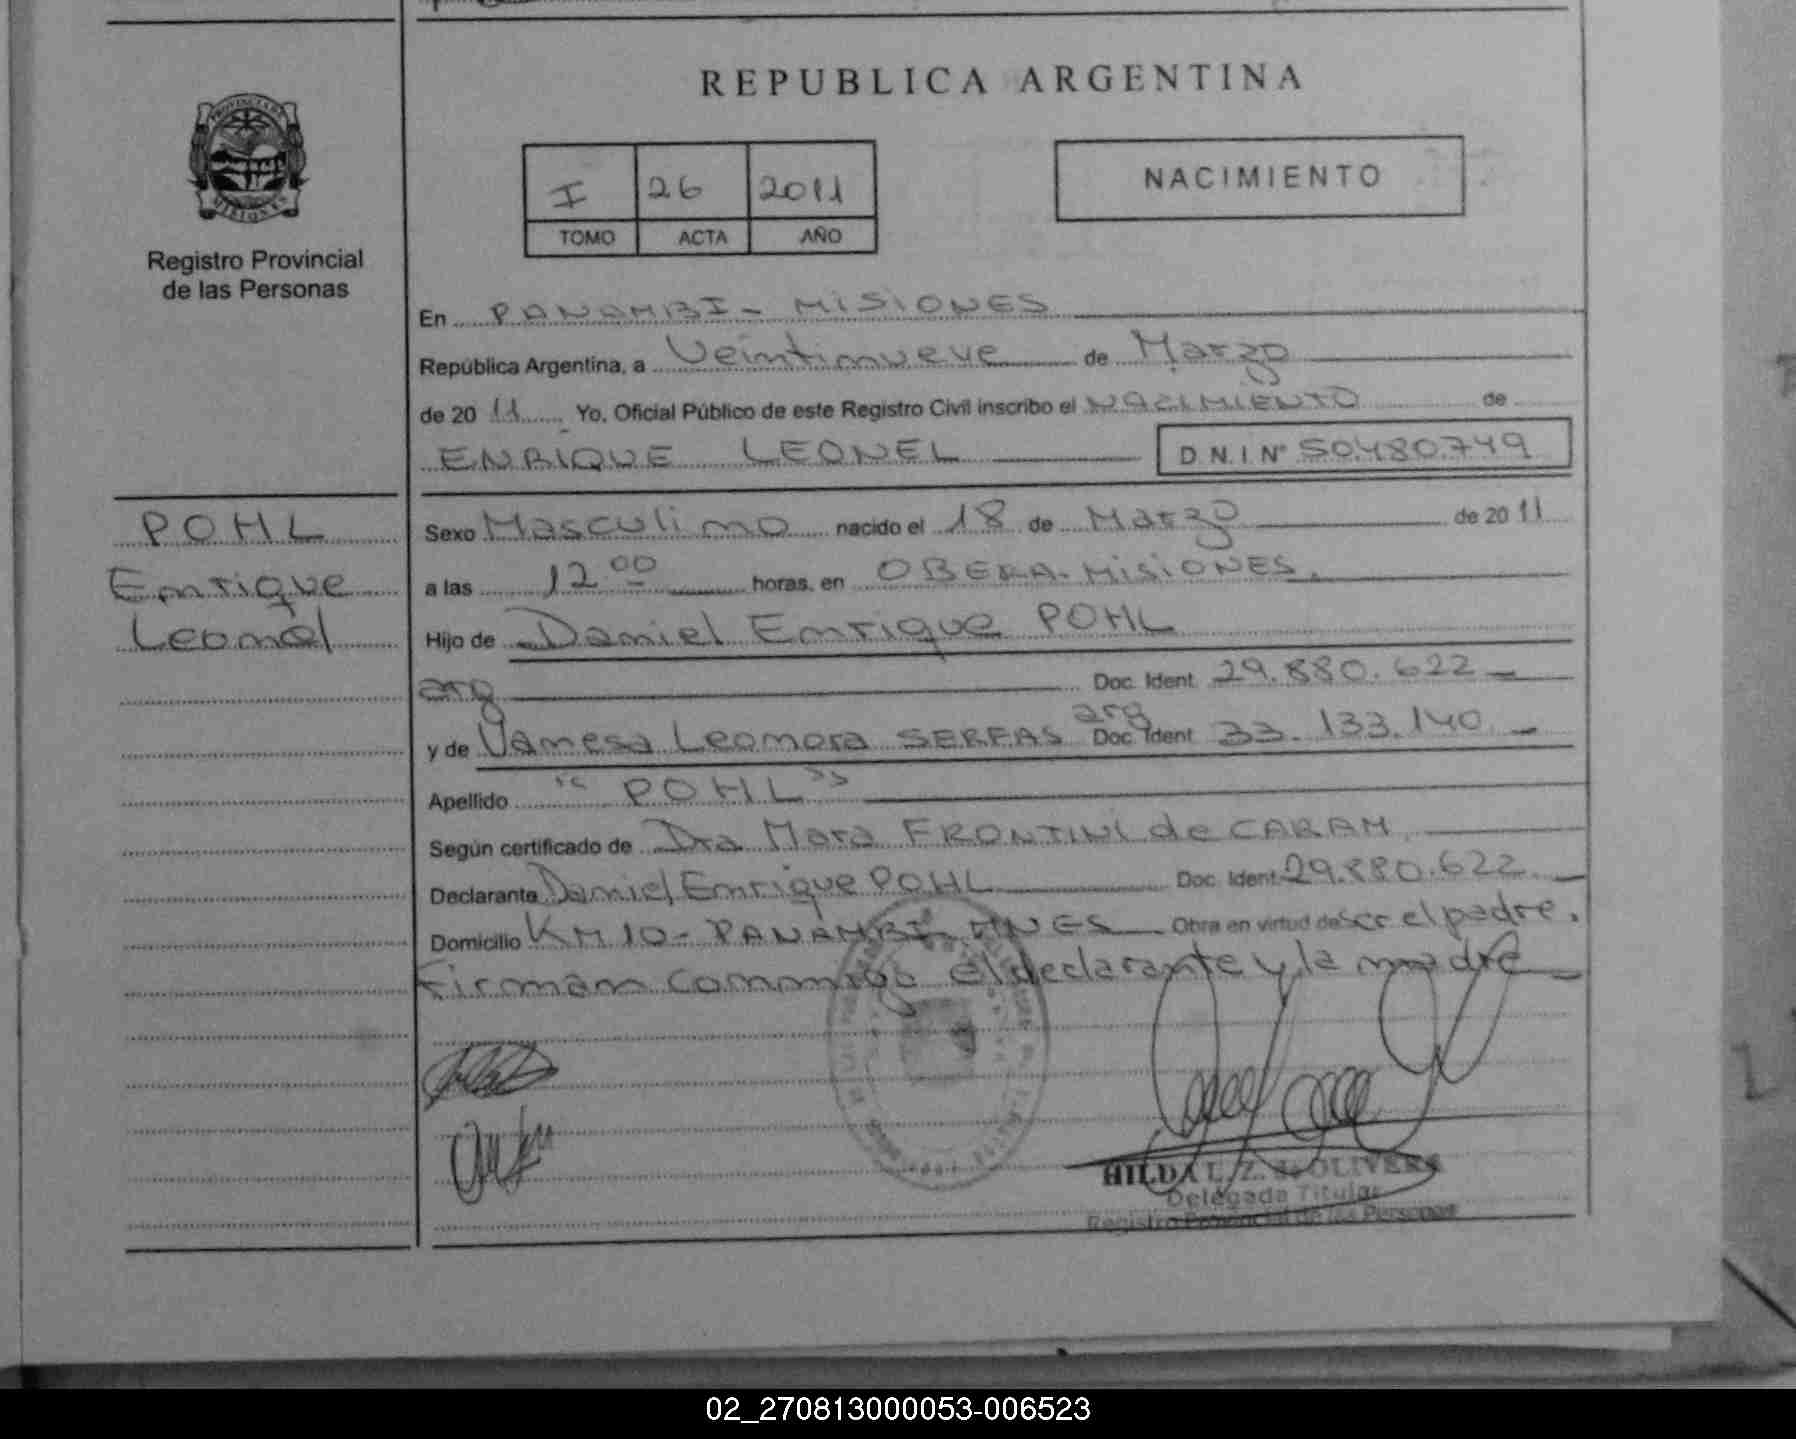 PROVINCIA DE
MISIONES
Registro Provincial
de las Personas
REPUBLICA ARGENTINA
I 26 2011
TOMO ACTA AÑO
NACIMIENTO
En PANAMBI - MISIONES
República Argentina, a Veintinueve de Marzo
de 20 11 Yo, Oficial Público de este Registro Civil inscribo el NACIMIENTO de
ENRIQUE LEONEL D.N.I Nº 50.480.749
POHL
Enrique
Leonel
Sexo Masculino nacido el 18 de Marzo de 20 11
a las 12 00 horas, en OBERA - MISIONES.
Hijo de Daniel Enrique POHL
arg Doc. Ident. 29.880.622 -
y de Vanesa Leonora SERFAS arg Doc. Ident. 33.133.140 -
Apellido "POHL"
Según certificado de Dra Mara FRONTINI de CARAM
Declarante Daniel Enrique POHL Doc. Ident. 29.880.622 -
Domicilio KM 10 - PANAMBI MNES Obra en virtud de ser el padre.
Firman conmigo el declarante y la madre
HILDA L. Z. de OLIVERA
Delegada Titular
Registro Provincial de las Personas
02_270813000053-006523